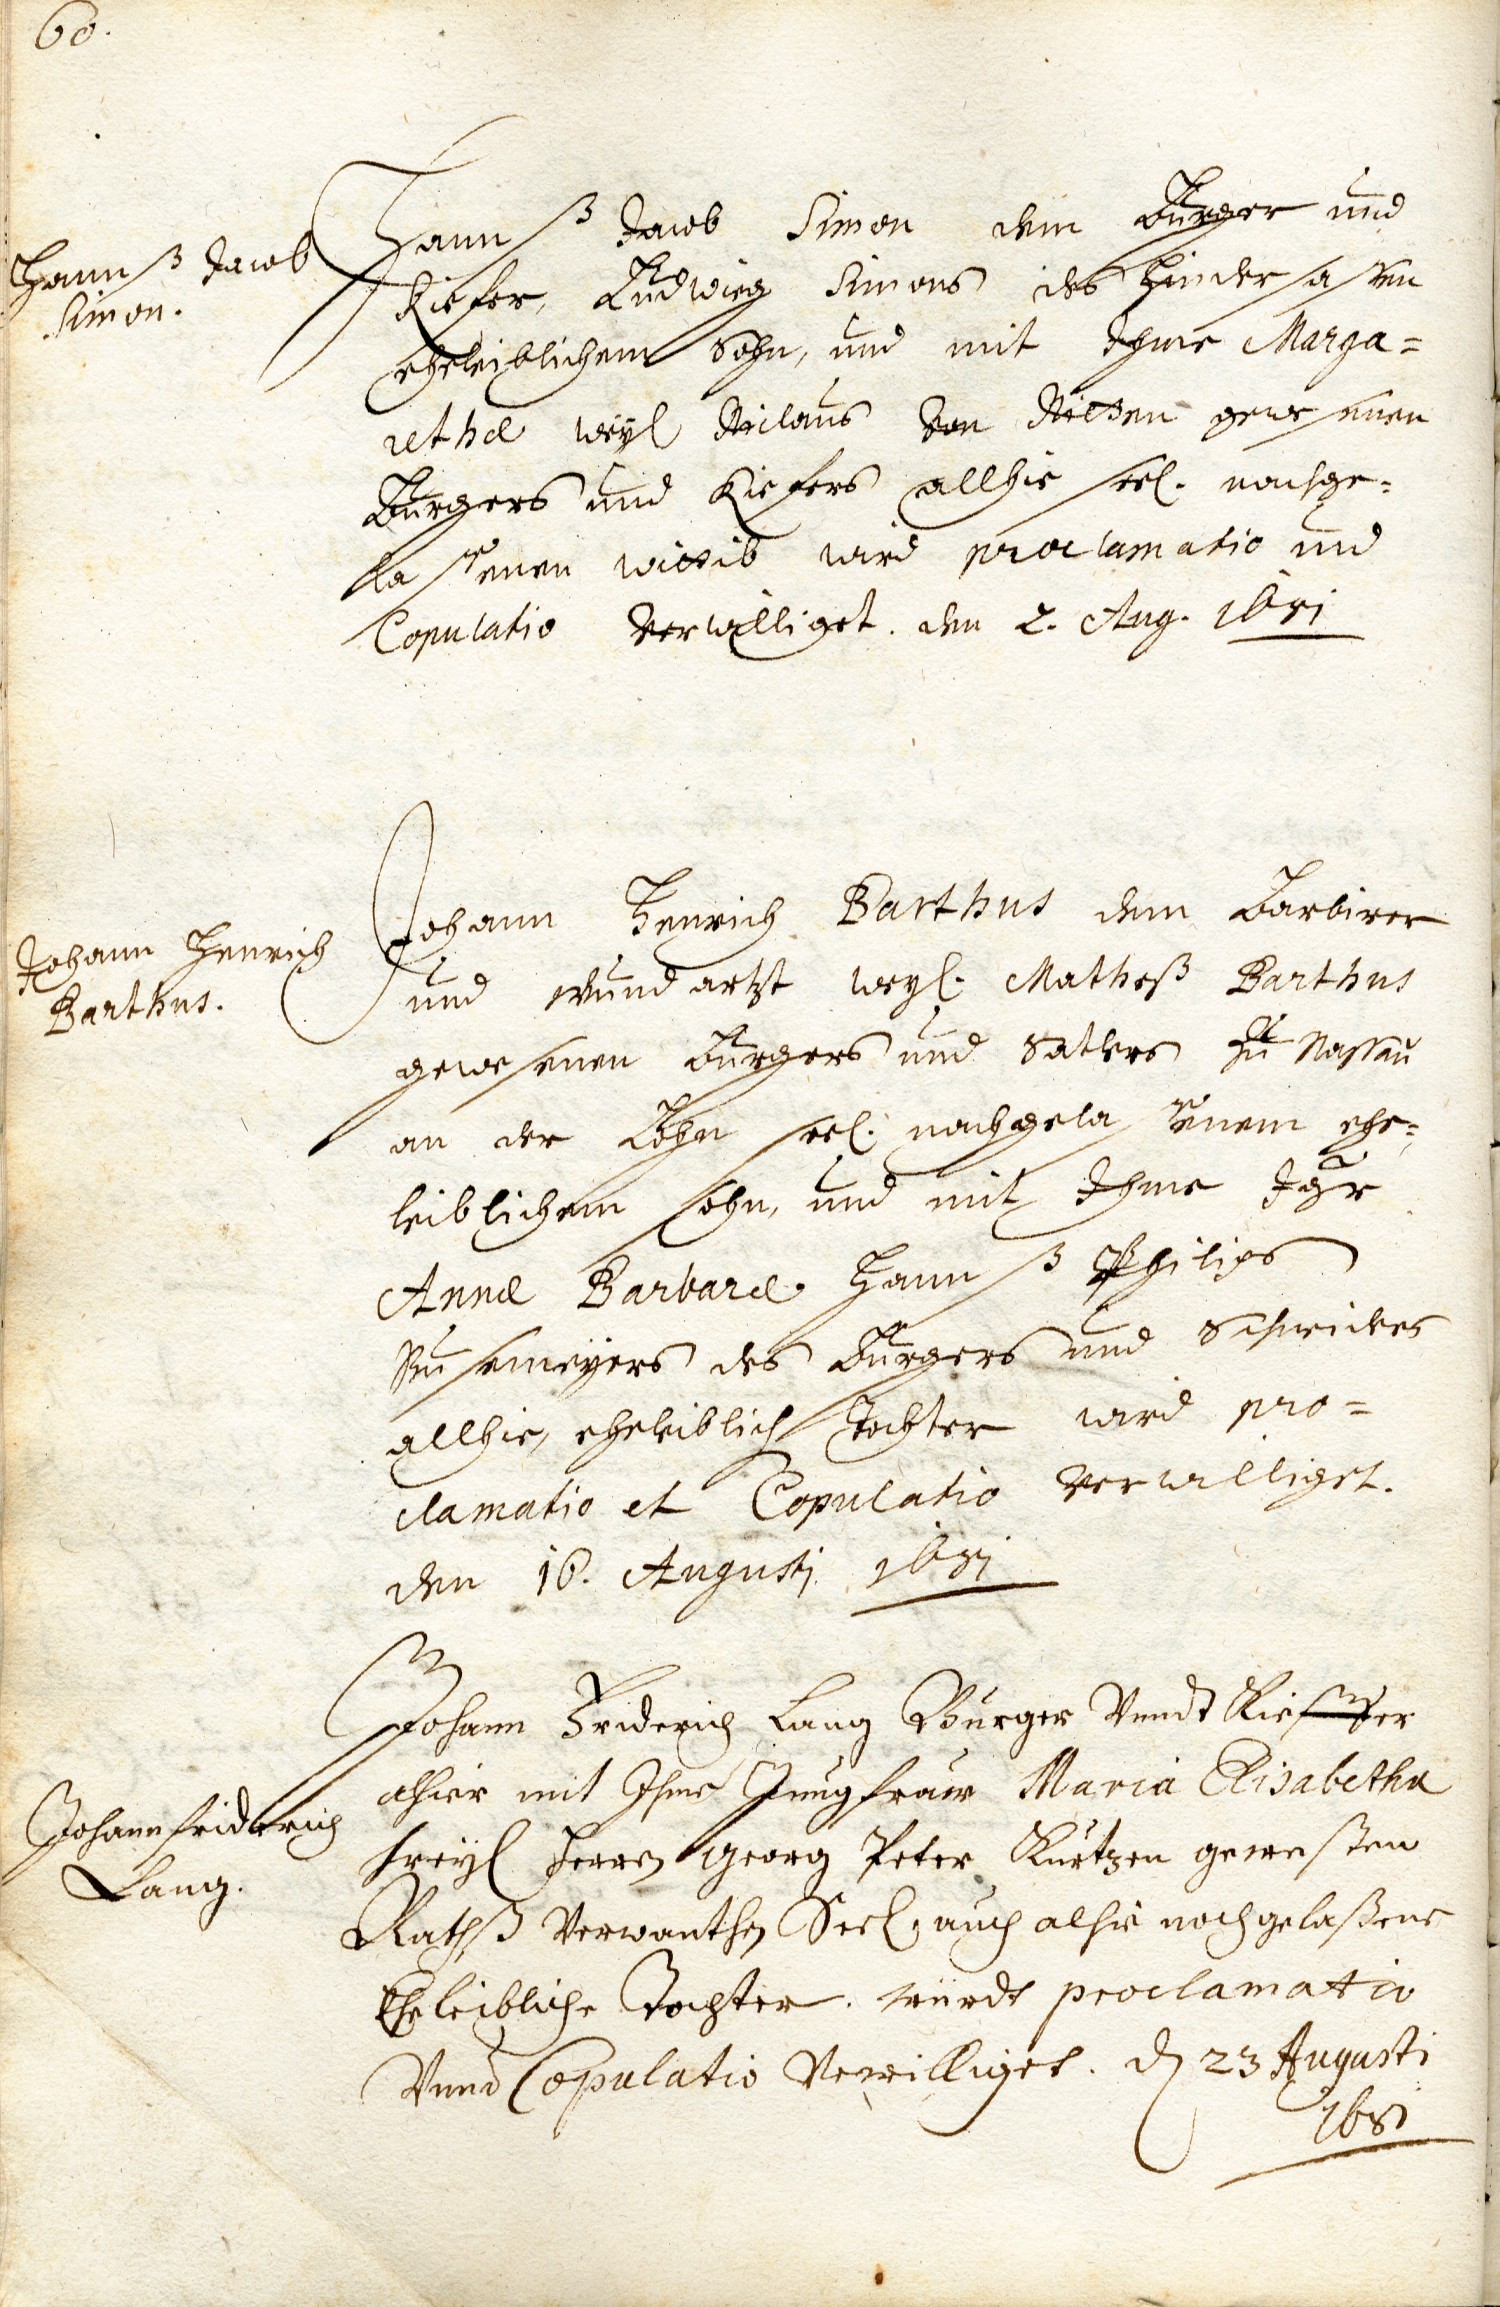 60.
Hannß Jacob
Simon.
Hannß Jacob Simon dem Burger und
Kiefer, Ludwieg Simons des Hindersassen
eheleiblichem Sohn, und mit Ihme Marga=
rethæ weyl Niclaus von gewesenen
Burgers und Kiefers allhie seel. nachge=
lassenen wittib wird proclamatio und
Copulatio verwilliget. den 2. Aug. 1681
Johann Henrich
Barthus.
Johann Henrich Barthus dem Barbirer
und Wundartzt weyl. Matheß Barthus
gewesenen Burgers und Satlers zu Nassau
an der Löhn seel. nachgelassenem ehe=
leiblichem sohn, und mit Ihme Jgfr
Annæ Barbaræ Hannß Philips
des Burgers und Schneiders
allhie, eheleiblich Tochter wird pro=
clamatio et Copulatio verwilliget.
den 16. Augusti 1681
Johann friderich
Lang.
Johann Friderich Lang Burger Vnndt Kieffer
alhier mit Ihme Jungfraw Maria Elisabetha
weyl Herren Georg Peter Kurtzen geweßten
Rathß Verwanthen Seel. auch alhie nachgelaßene
Eheleibliche Tochter. würdt proclamatio
Vnnd Copulatio Verwilliget. d 23 Augusti
1681